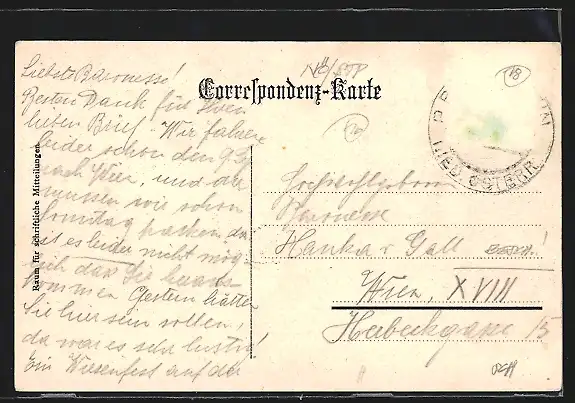 Liebste Baronesse!
Besten Dank für Ihren
lieben Brief. Wir fahren
leider schon den 9.
nach Wien, und da
müssen wir schon
Sonntag packen, da
ist es leider nicht mög-
lich das Sie heraus
kommen. Gestern hätten
Sie hier sein sollen,
da war es sehr lustig!
Ein Wiesenfest auf der
Raum für schriftliche Mitteilungen.
Correspondenz-Karte
18
NIED. ÖSTERR.
Hochwohlgeboren
Baronesse
Hanka v Gall
Wien, XVIII
Haubekgasse 15